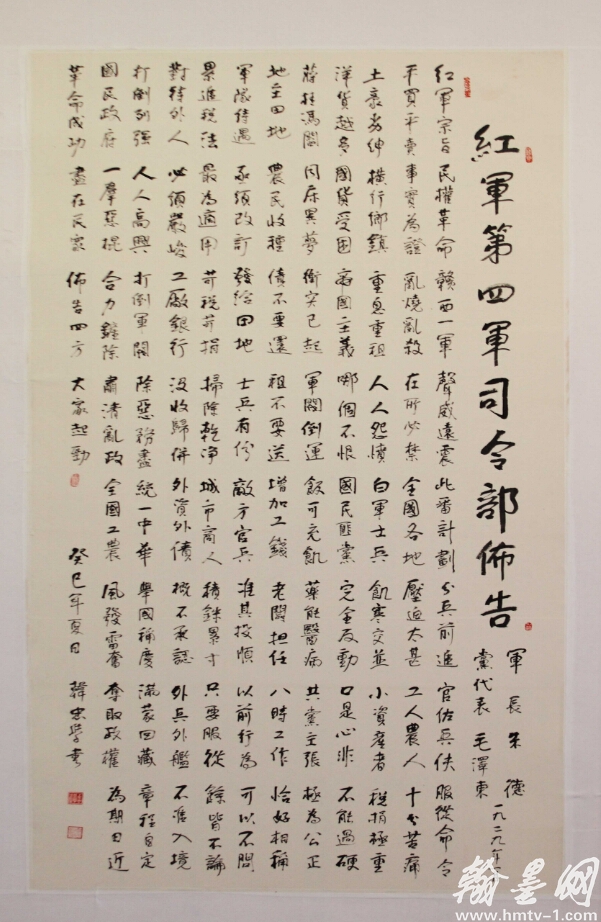 紅軍第四軍司令部佈告
軍長 朱德
黨代表 毛澤東
一九二九年
紅軍宗旨 民權革命 贛西一軍 聲威遠震 此番計劃 分兵前進 官佐兵伕 服從命令
平買平賣 事實為證 亂燒亂殺 在所必禁 全國各地 壓迫太甚 工人農人 十分苦痛
土豪劣紳 橫行鄉鎮 重息重租 人人怨憤 白軍士兵 飢寒交並 小資產者 稅捐極重
洋貨越多 國貨受困 帝國主義 哪個不恨 國民匪黨 完全反動 口是心非 不能過硬
蔣桂馮閻 同床異夢 衝突已起 軍閥倒運 飯可充飢 藥能醫病 共黨主張 極為公正
地主田地 農民收種 債不要還 租不要送 增加工錢 老闆担任 八時工作 恰好相稱
軍隊待遇 亟須改訂 發給田地 士兵有份 敵方官兵 准其投順 以前行為 可以不問
累進稅法 最為適用 苛稅苛捐 掃除乾淨 城市商人 積銖累寸 只要服從 餘皆不論
對待外人 必須嚴峻 工廠銀行 沒收歸併 外資外債 概不承認 外兵外艦 不准入境
打倒列強 人人高興 打倒軍閥 除惡務盡 統一中華 舉國稱慶 滿蒙回藏 章程自定
國民政府 一羣惡棍 合力鏟除 肅清亂政 全國工農 風發雷奮 奪取政權 為期日近
革命成功 盡在民眾 佈告四方 大家起勁 癸巳年夏日 韓忠學書
翰墨网
www.hmtv-1.com